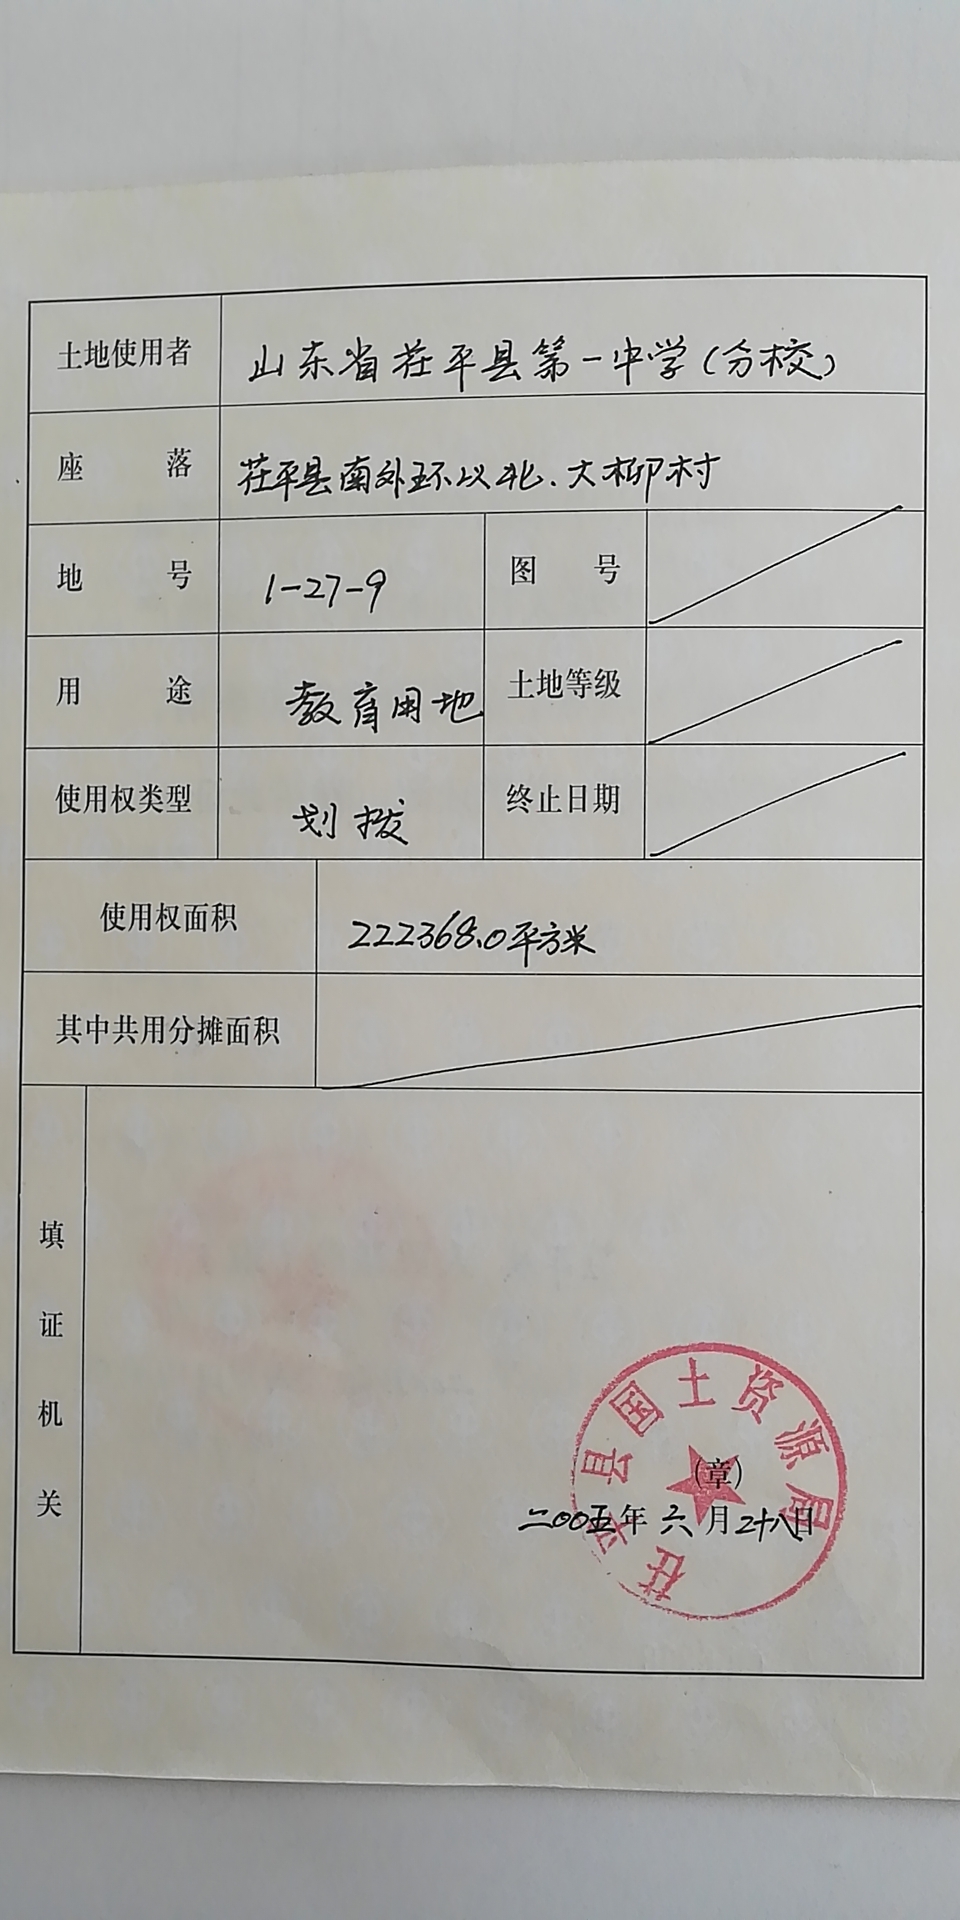 土地使用者 山东省茌平县第一中学（分校）
座落 茌平县南外环以北、大柳村
地号 1-27-9 图号
用途 教育用地 土地等级
使用权类型 划拨 终止日期
使用权面积 222368.0平方米
其中共用分摊面积
填证机关
茌平县国土资源局
（章）
二00五年六月二十八日